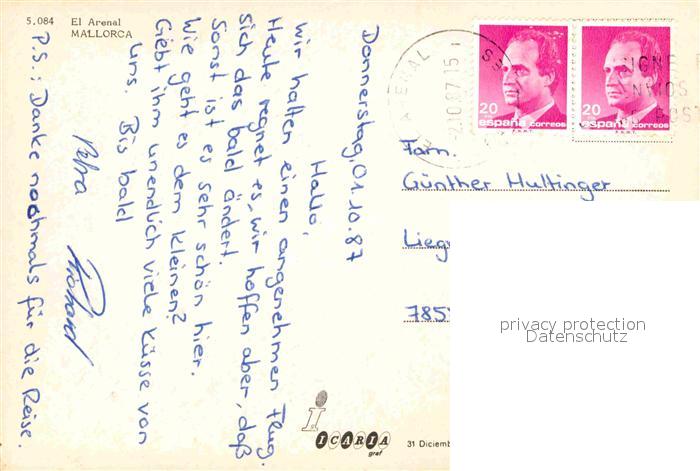 5.084 El Arenal
MALLORCA
Donnerstag, 01.10.87
Hallo,
wir hatten einen angenehmen Flug.
Heute regnet es, wir hoffen aber, daß
sich das bald ändert.
Sonst ist es sehr schön hier.
Wie geht es dem Kleinen?
Gebt ihm unendlich viele Küsse von
uns. Bis bald
Petra Richard
P.S.: Danke nochmals für die Reise.
ARENAL
2.10.87 15
20
españa correos
F.N.M.T.
20
españa correos
F.N.M.T.
Fam.
Günther Hultinger
Lieg
785
privacy protection
Datenschutz
ICARIA
graf
31 Diciemb